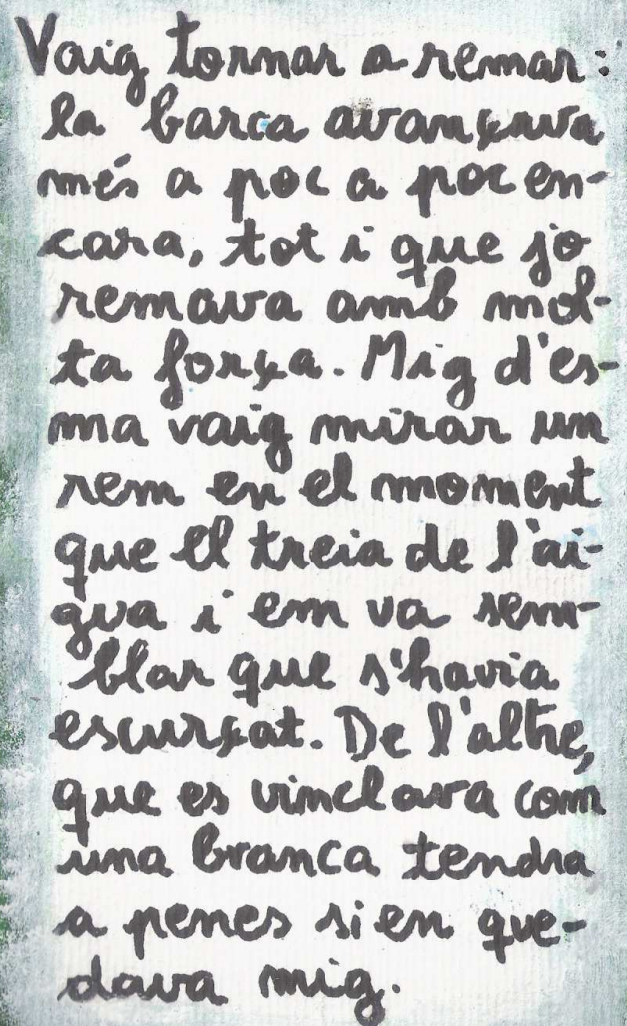 Vaig tornar a remar:
la barca avançava
més a poc a poc en-
cara, tot i que jo
remava amb mol-
ta força. Mig d'es-
ma vaig mirar un
rem en el moment
que el treia de l'ai-
gua i em va sem-
blar que s'havia
escurçat. De l'altre,
que es vinclava com
una branca tendra
a penes si en que-
dava mig.